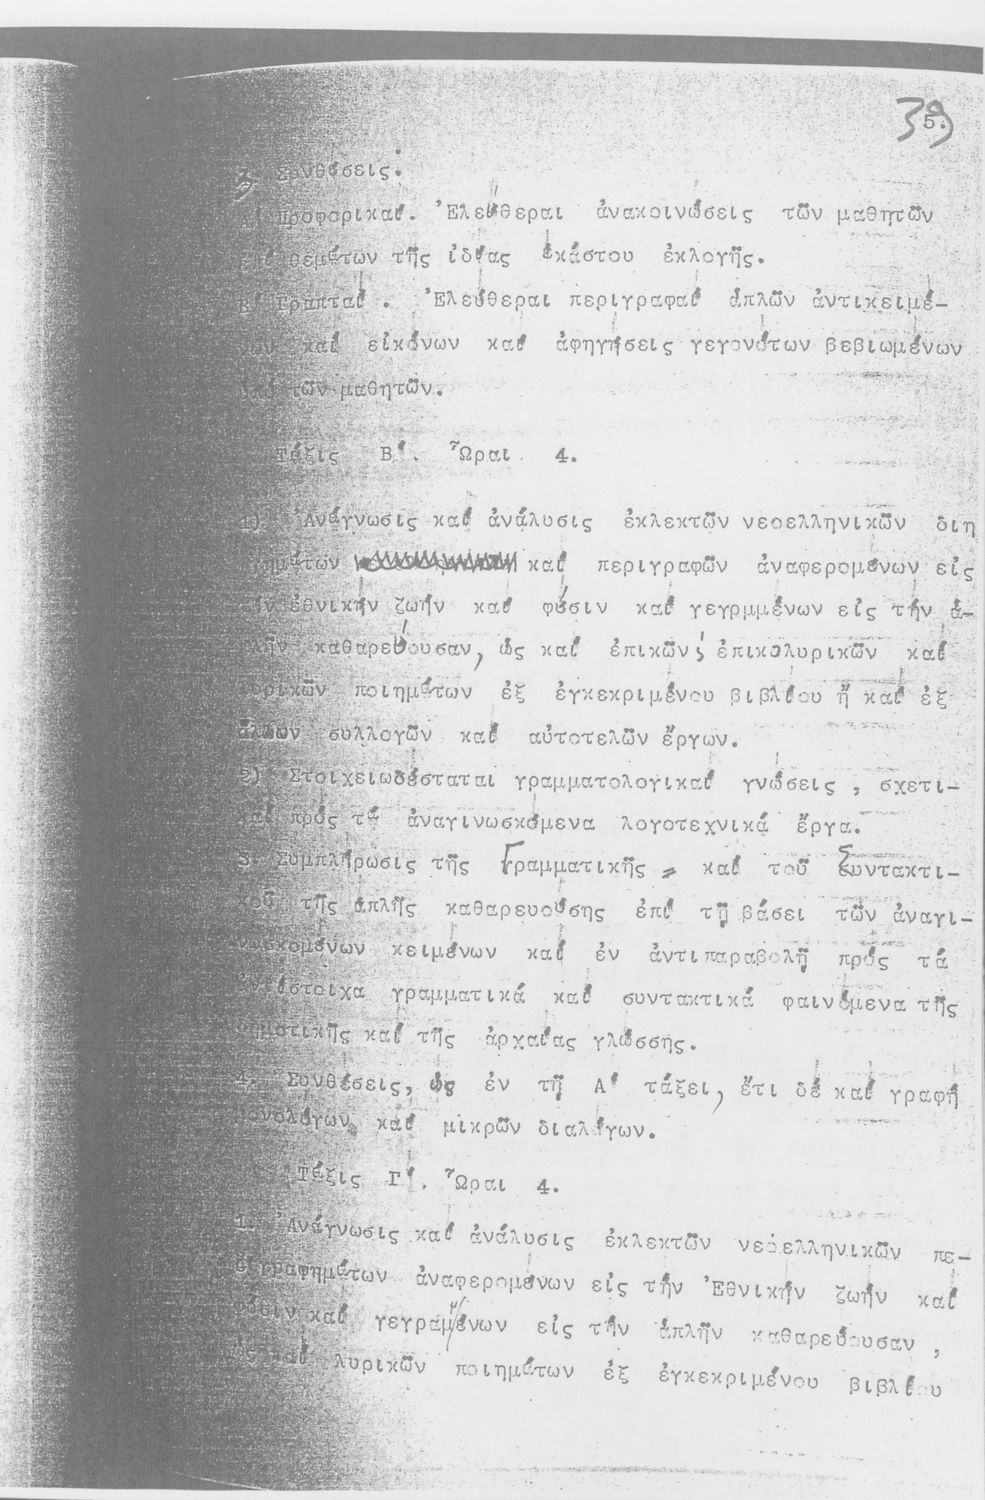 39
5.
3. Συνθέσεις:
Α΄ Προφορικαί. Ἐλεύθεραι ἀνακοινώσεις τῶν μαθητῶν
θεμάτων τῆς ἰδίας ἑκάστου ἐκλογῆς.
Β΄ Γραπταί . Ἐλεύθεραι περιγραφαί ἁπλῶν ἀντικειμέ-
νων καί εἰκόνων καί ἀφηγήσεις γεγονότων βεβιωμένων
ὑπό τῶν μαθητῶν.
Τάξις Β΄. Ὧραι 4.
1) Ἀνάγνωσις καί ἀνάλυσις ἐκλεκτῶν νεοελληνικῶν διη
γημάτων καί περιγραφῶν ἀναφερομένων εἰς
τήν ἐθνικήν ζωήν καί φύσιν καί γεγρμμένων εἰς τήν ἁ-
πλῆν καθαρεύουσαν, ὡς καί ἐπικῶν, ἐπικολυρικῶν καί
λυρικῶν ποιημάτων ἐξ ἐγκεκριμένου βιβλίου ἤ καί ἐξ
ἄλλων συλλογῶν καί αὐτοτελῶν ἔργων.
2) Στοιχειωδέσταται γραμματολογικαί γνώσεις , σχετι-
καί πρός τά ἀναγινωσκόμενα λογοτεχνικά ἔργα.
3. Συμπλήρωσις τῆς Γραμματικῆς καί τοῦ Συντακτι-
κοῦ τῆς ἁπλῆς καθαρευούσης ἐπί τῇ βάσει τῶν ἀναγι-
νωσκομένων κειμένων καί ἐν ἀντιπαραβολῇ πρός τά
ἀντίστοιχα γραμματικά καί συντακτικά φαινόμενα τῆς
δημοτικῆς καί τῆς ἀρχαίας γλώσσης.
4. Συνθέσεις, ὡς ἐν τῇ Α΄ τάξει, ἔτι δέ καί γραφή
μονολόγων καί μικρῶν διαλόγων.
Τάξις Γ΄. Ὧραι 4.
1. Ἀνάγνωσις καί ἀνάλυσις ἐκλεκτῶν νεοελληνικῶν πε-
ζογραφημάτων ἀναφερομένων εἰς τήν Ἐθνικήν ζωήν καί
φύσιν καί γεγραμμένων εἰς τήν ἁπλῆν καθαρεύουσαν ,
ὡς καί λυρικῶν ποιημάτων ἐξ ἐγκεκριμένου βιβλίου